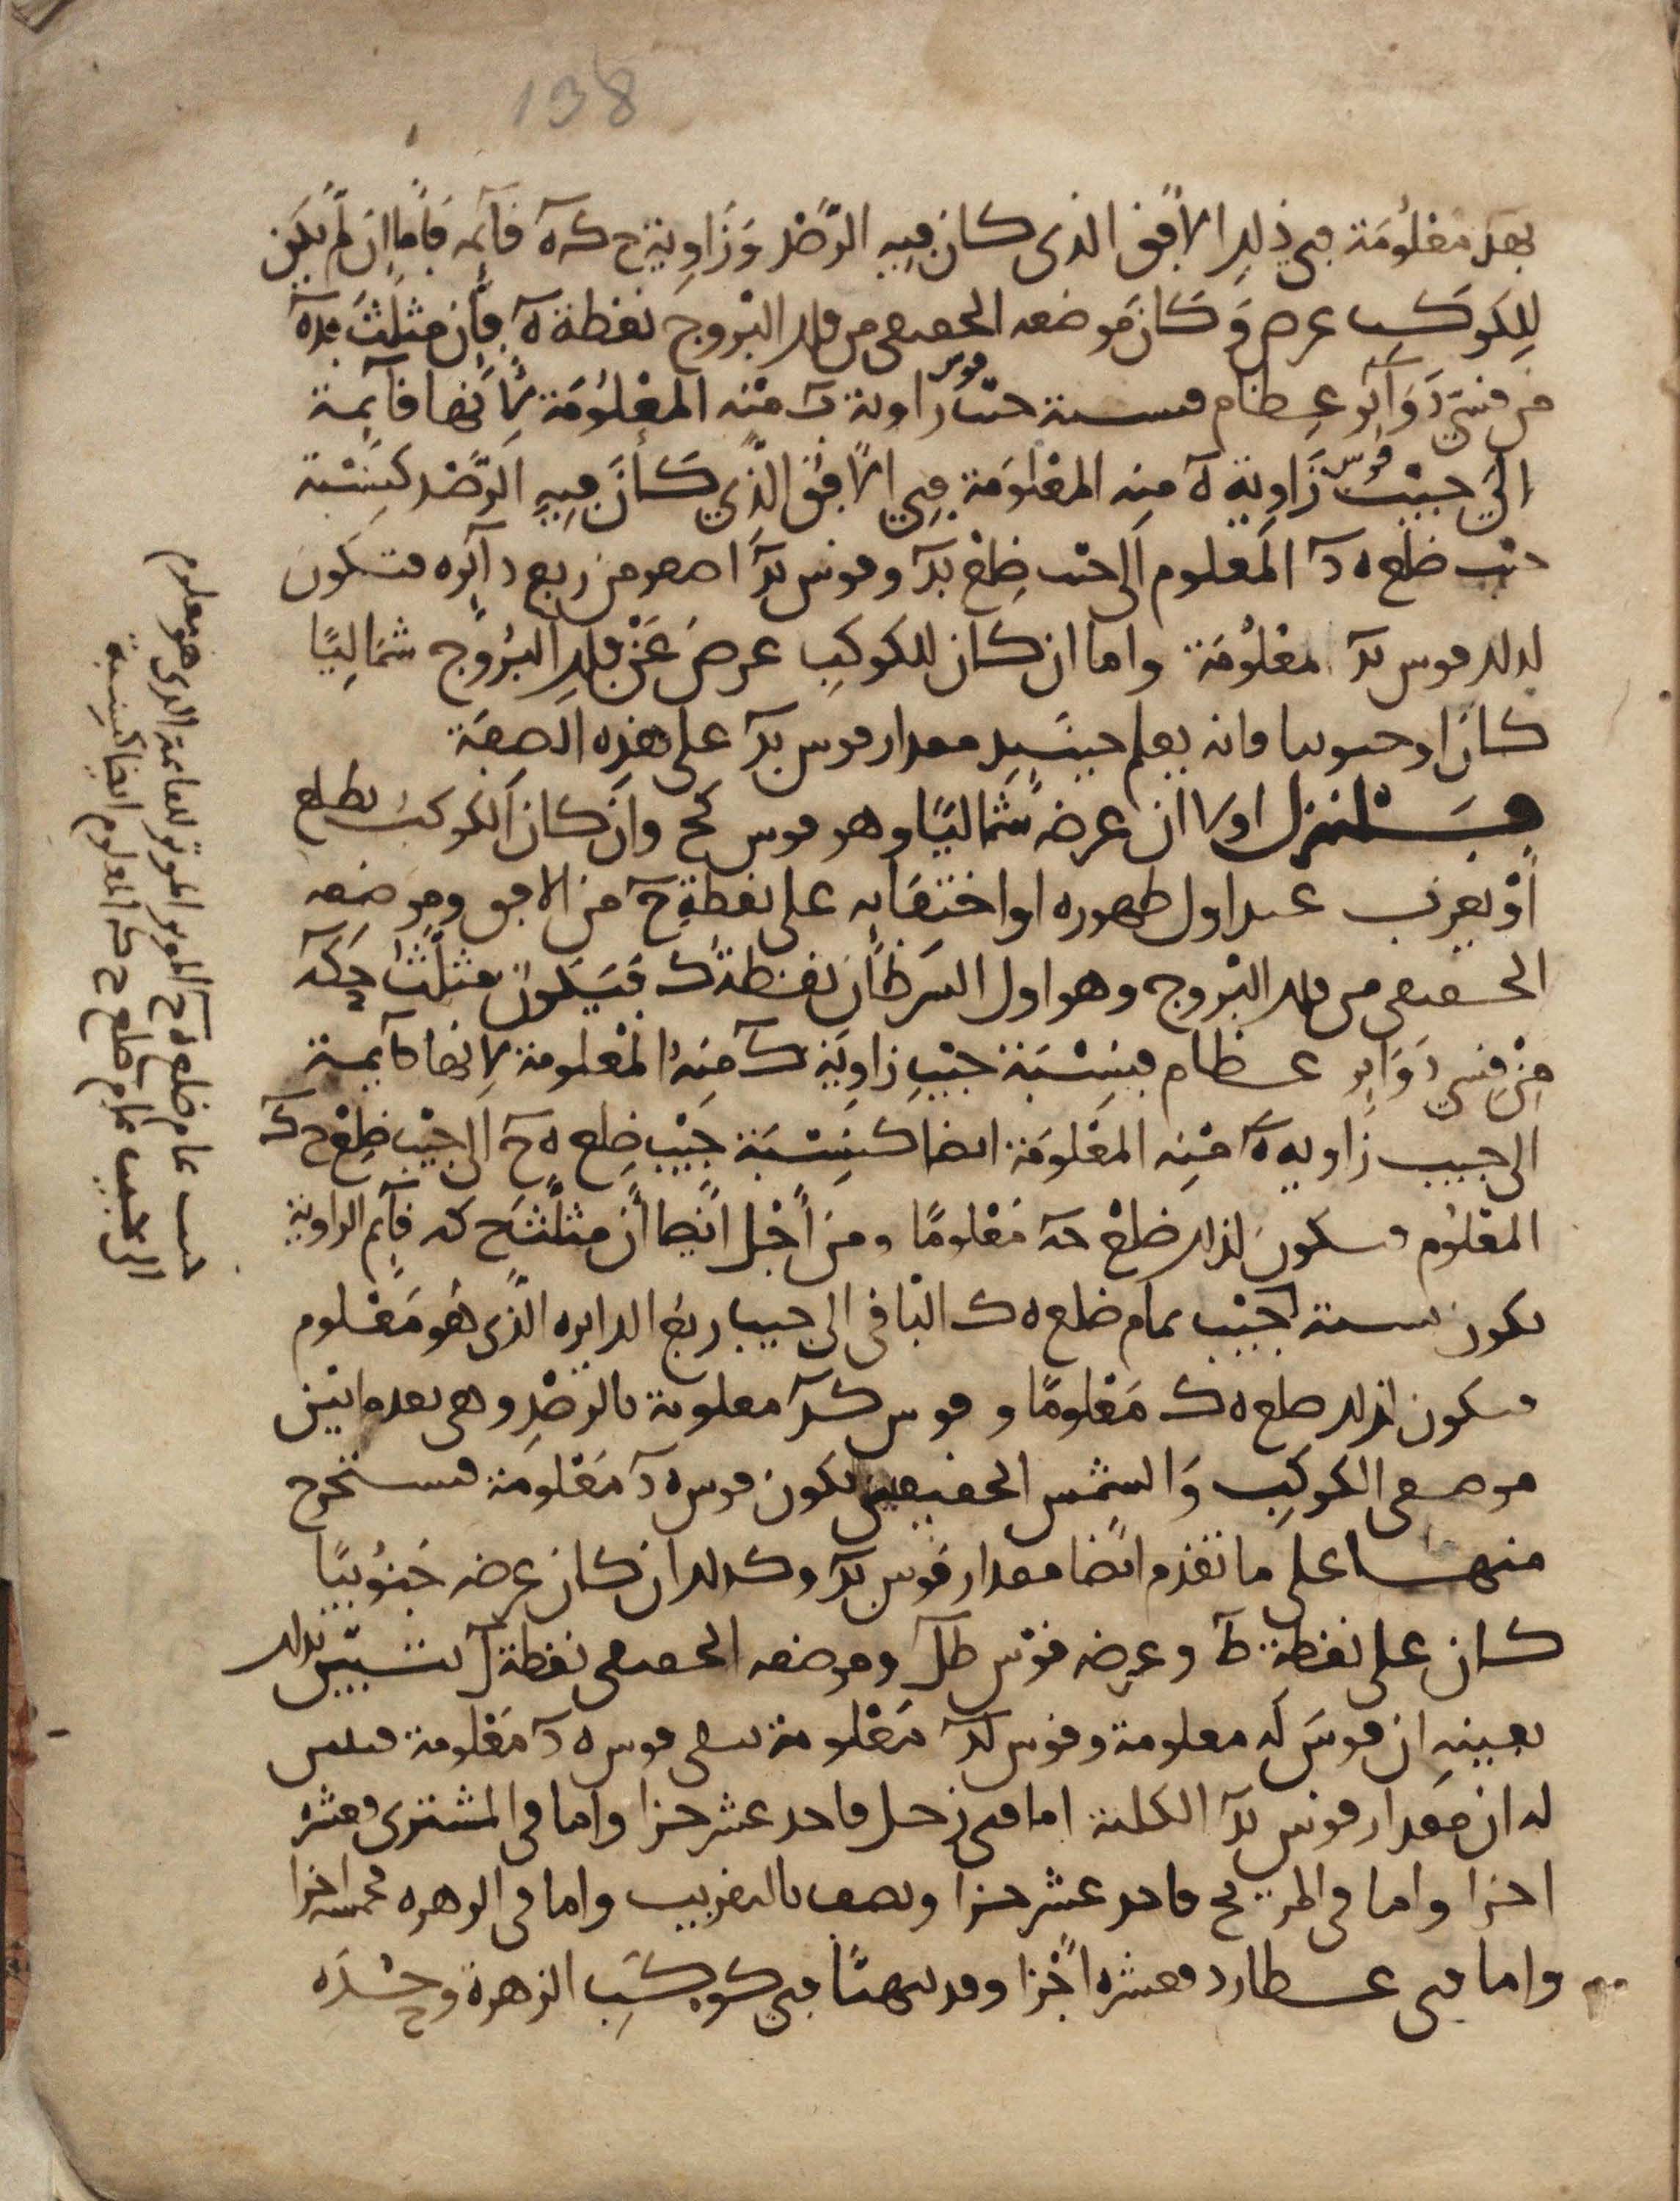 138
بهذ معلومة في ذلك الافق الذي كان فيه الرصد وزاوية ح ك ه قائمه فاما ان لم يكن
للكوكب عرض وكان موضعه الحقيقي من فلك البروج نقطة ه فان مثلث بده
من قسي دوائر عظام فنسبة جيب قوس زاوية ب منه المعلومة لانها قائمة
الى جيب قوس زاوية ه منه المعلومة في الافق الذي كان فيه الرصد كنسبة
جيب ضلع ه د المعلوم الى جيب ضلع بد وقوس بد اصغر من ربع دائره فتكون
لذلك قوس بد معلومة واما ان كان للكوكب عرض عن فلك البروج شماليا
كان او جنوبيا فانه يعلم حينيذ مقدار قوس بد على هذه الصفة
فسلنزل اولا ان عرضه شماليا وهو قوس كح وان كان الكوكب يطلع
او يغرب عند اول ظهوره او اختفايه على نقطة ح من الافق وموضعه
الحقيقي من فلك البروج وهو اول السرطان نقطة ك فيكون مثلث حكه
من قسي دواير عظام فنسبة جيب زاوية ك منه المعلومة لانها قايمة
الى جيب زاويه ه منه المعلومة ايضا كنسبة جيب ضلع ه ح الى جيب ضلع ح ك
المعلوم فيكون لذلك ضلع حه معلوما ومن اجل ايضا ان مثلث ح كه قايم الزاوية
يكون نسبة جيب تمام ضلع ه ك الباقي الى جيب ربع الدايره الذي هو معلوم
فيكون لذلك ضلع ه ك معلوما وقوس كد معلومة بالرصد وهي بعد ما بين
موضعي الكوكب والشمس الحقيقيين يكون قوس ه د معلومة فيستخرج
منها على ما تقدم ايضا مقدار قوس بد وكذلك ان كان عرضه جنوبيا
كان على نقطة ط وعرضه قوس طل وموضعه الحقيقي نقطة ل تبين بذلك
بعينه ان قوس له معلومة وقوس لد معلومة تبقى قوس ه د معلومة فتبين
له ان مقدار قوس بد الكلية اما في زحل فاحد عشر جزا واما في المشتري فعشره
اجزا واما في المريخ فاحد عشر جزا ونصف بالتقريب واما في الزهره فخمسه اجزا
واما في عطارد فعشره اجزا وقد بينا في كوكب الزهرة وحده
جيب تمام ضلع ه ح الموتر للقايمة الذي هو معلوم
الى جيب تمام ضلع ح ك المعلوم ايضا كنسبة